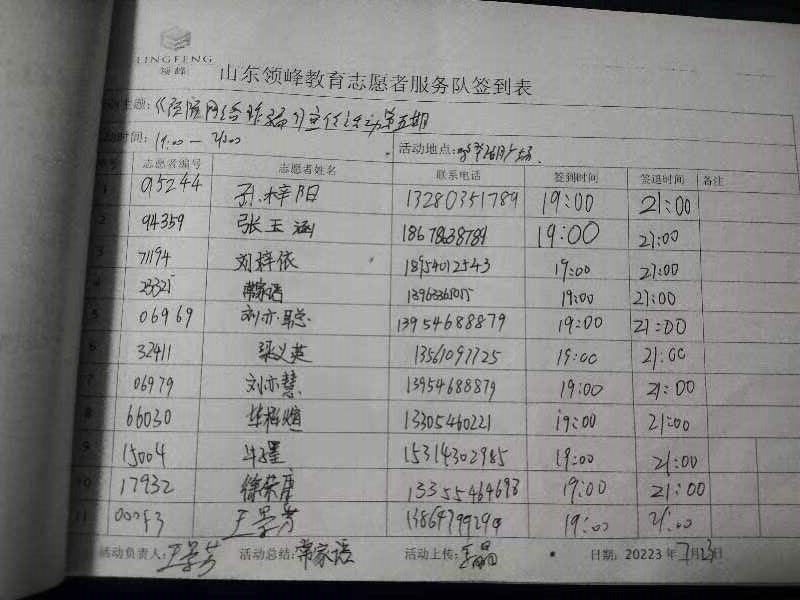 LINGFENG
领峰
山东领峰教育志愿者服务队签到表
主题:《预防网络诈骗》宣传活动第五期
动时间: 19:00 — 21:00 活动地点: 广场
志愿者编号 志愿者姓名 联系电话 签到时间 签退时间 备注
1 05244 孙梓阳 13280351789 19:00 21:00
2 94359 张玉涵 18678638789 19:00 21:00
3 71194 刘梓依 18954012543 19:00 21:00
4 23321 常家语 19:00 21:00
5 06969 刘亦聪 13954688879 19:00 21:00
6 32411 梁义英 13561097725 19:00 21:00
7 06979 刘亦慧 13954688879 19:00 21:00
8 66030 13305460221 19:00 21:00
9 15004 15314302985 19:00 21:00
10 17932 徐荣唐 13355464698 19:00 21:00
11 王景芳 19:00 21:00
活动负责人: 王景芳 活动总结: 常家语 活动上传: 王晶 日期: 20223 年 7月23日